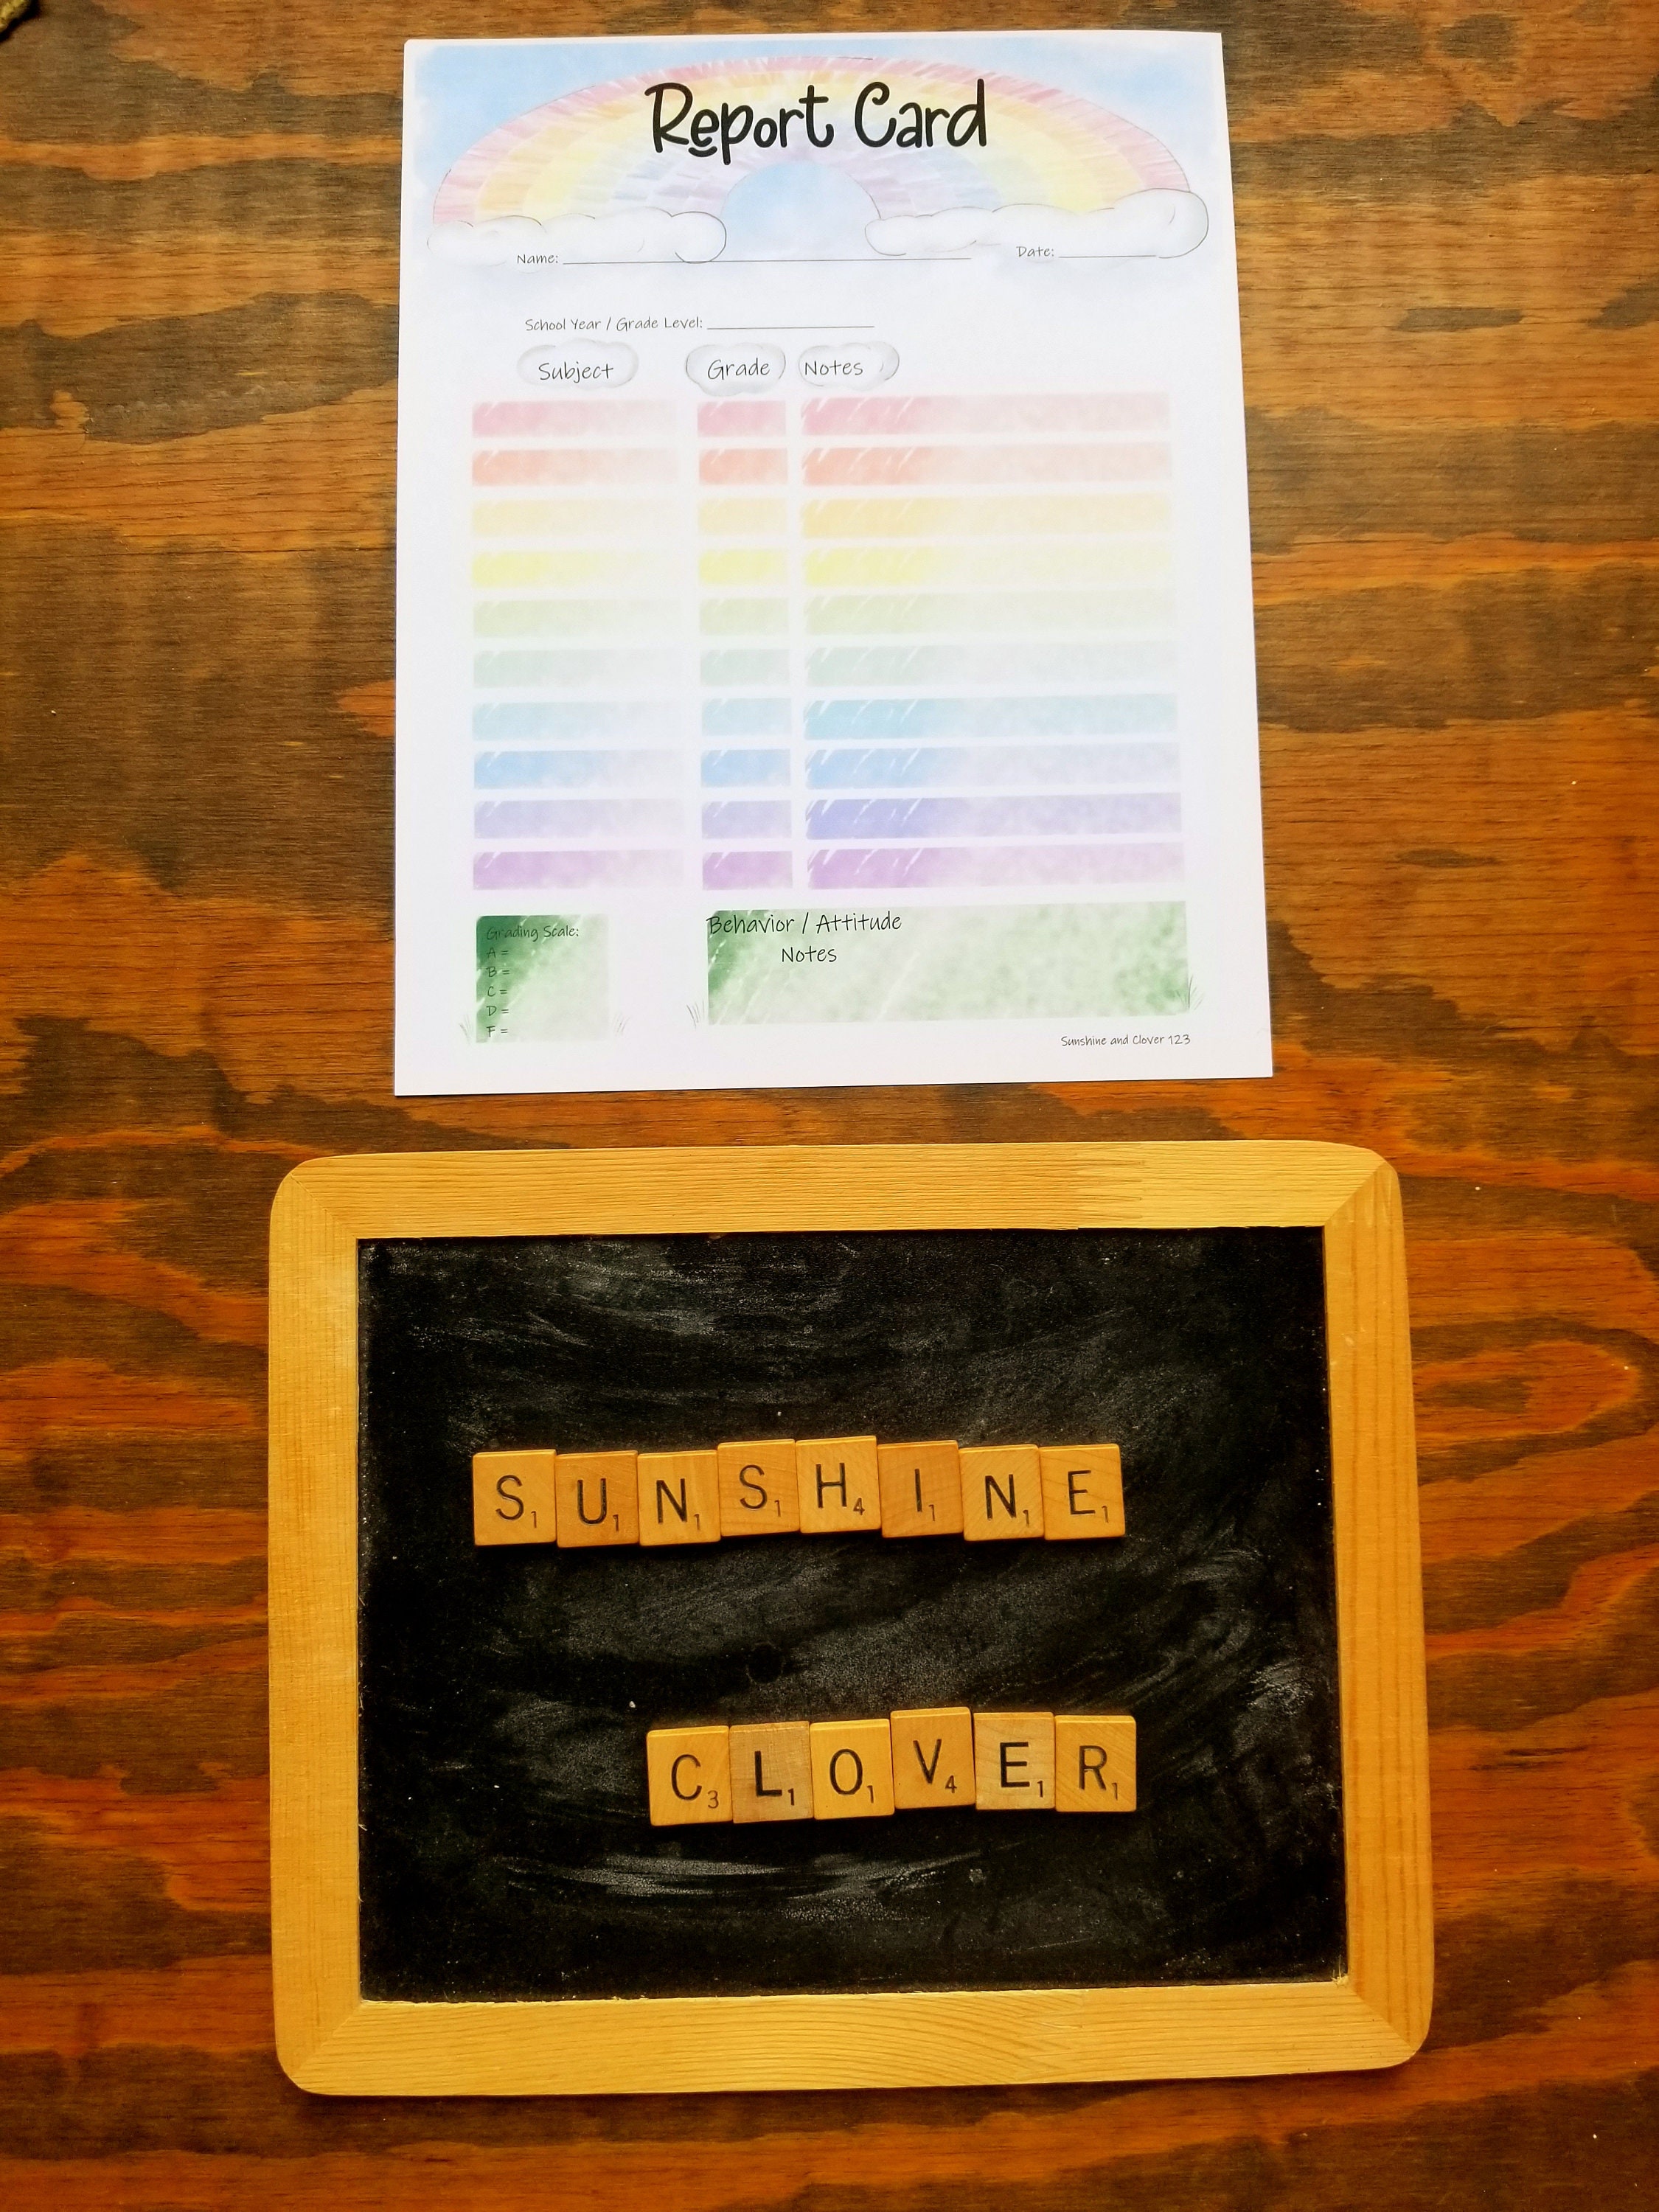 Report Card
Name: Date:
School Year / Grade Level:
Subject Grade Notes
Grading Scale:
A =
B =
C =
D =
F =
Behavior / Attitude
Notes
Sunshine and Clover 123
S1 U1 N1 S1 H4 I1 N1 E1
C3 L1 O1 V4 E1 R1